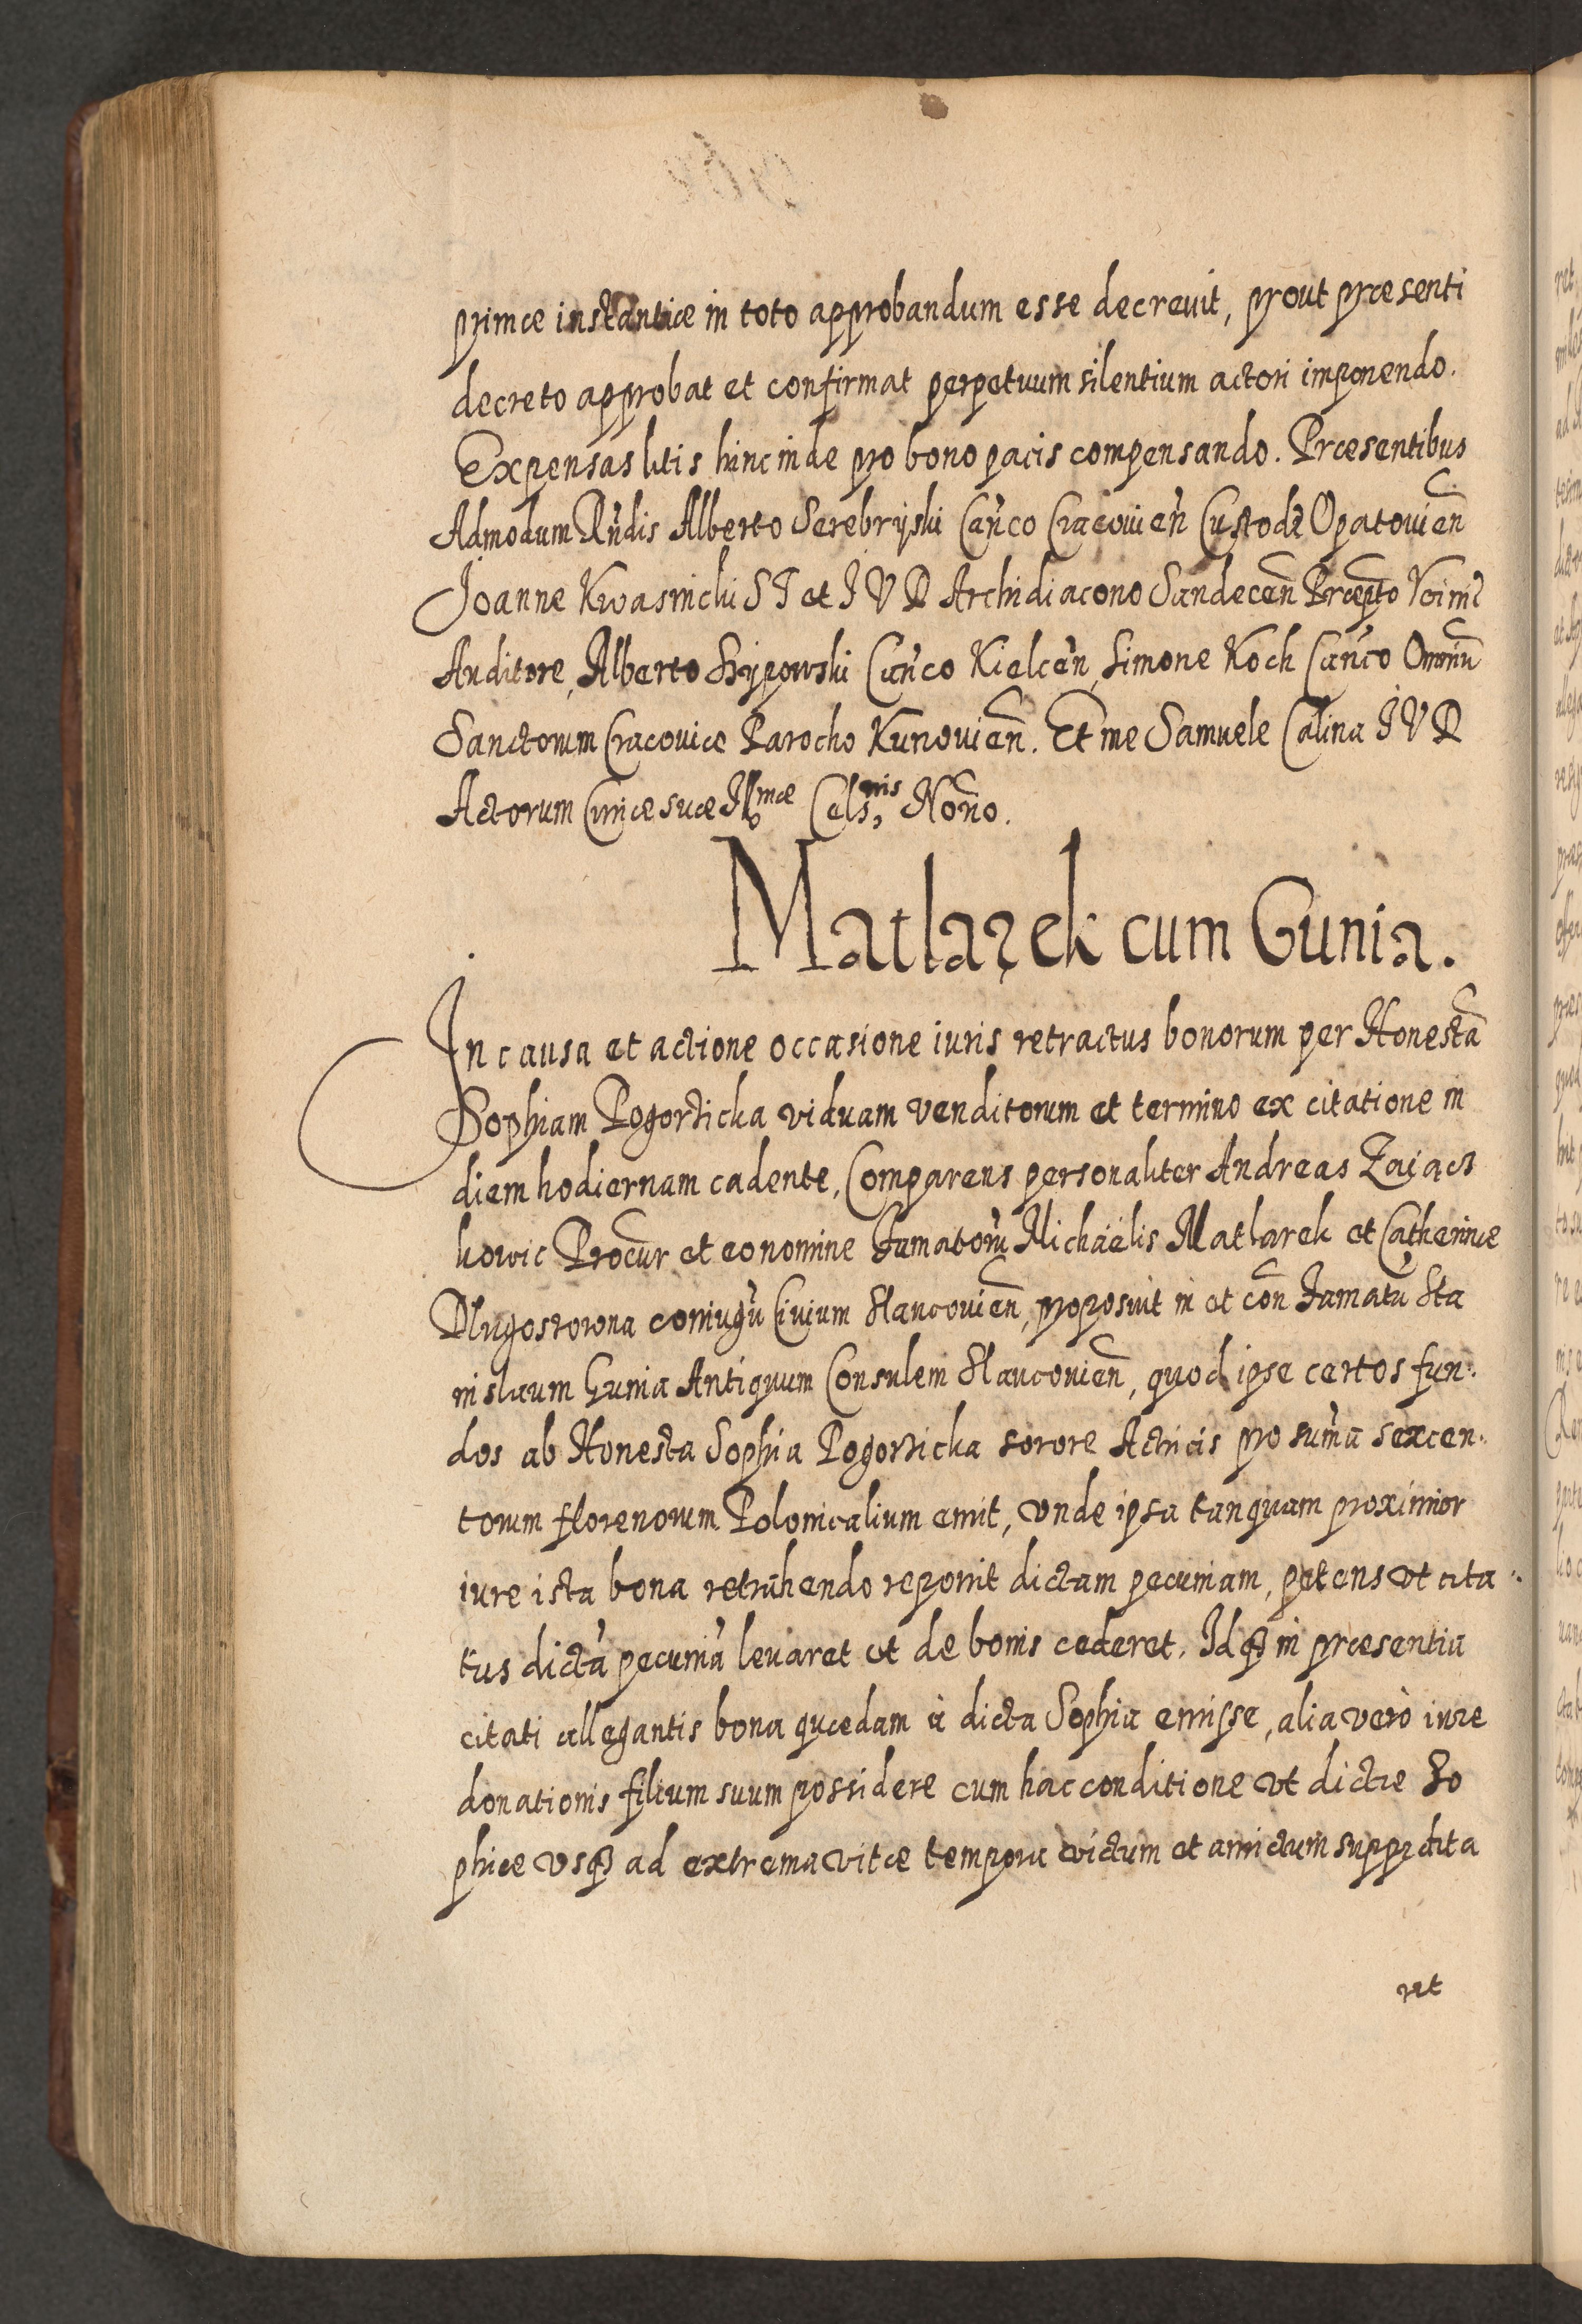 primæ instantiæ in toto approbandum esse decreuit, prout præsenti
decreto approbat et confirmat perpetuum silentium actori imponendo.
Expensas litis hinc inde pro bono pacis compensando. Præsentibus
Admodum Rńdis Alberto Serebryski Cańco Cracovień Custode Opatovień
Joanne Kwasnicki S T et I V D Archidiacono Sandeceñ Præpto
Auditore, Alberto Szypowski Cańco Kielceń, Simone Koch Cańco Omniũ
Sanctorum Cracoviæ Parocho Kunovieñ. Et me Samuele Calina I V D
Actorum Curiæ suæ Ill.mæ Cels.nis Noño.
Matlaszek cum Gunia.
In causa et actione occasione iuris retractus bonorum per Honestã
Sophiam Pogorzicka viduam venditorum et termino ex citatione in
diem hodiernam cadente, Comparens personaliter Andreas Zaiącz
kowic Procur̃ et eo nomine Famatorũ Michaëlis Matlarek et Catherinæ
Dlugoszowna coniugũ Civium Slaucovieñ, proposuit in et coñ Famatũ Sta
nislaum Gunia Antiquum Consulem Slaucovieñ, quod ipse certos fun:
dos ab Honesta Sophia Pogorzicka sorore Actricis pro sum̃a sexcen:
torum florenorum Polonicalium emit, vnde ipsa tanquam proximior
iure ista bona retrahendo reponit dictam pecuniam, petens vt cita:
tus dictã pecuniã leuaret et de bonis cederet. Idq3 in præsentia
citati allegantis bona quædam à dicta Sophia emisse, alia verò iure
donationis filium suum possidere cum hac conditione vt dictæ So
phiæ vsq3 ad extrema vitæ tempora victum et amictum suppedita
ret